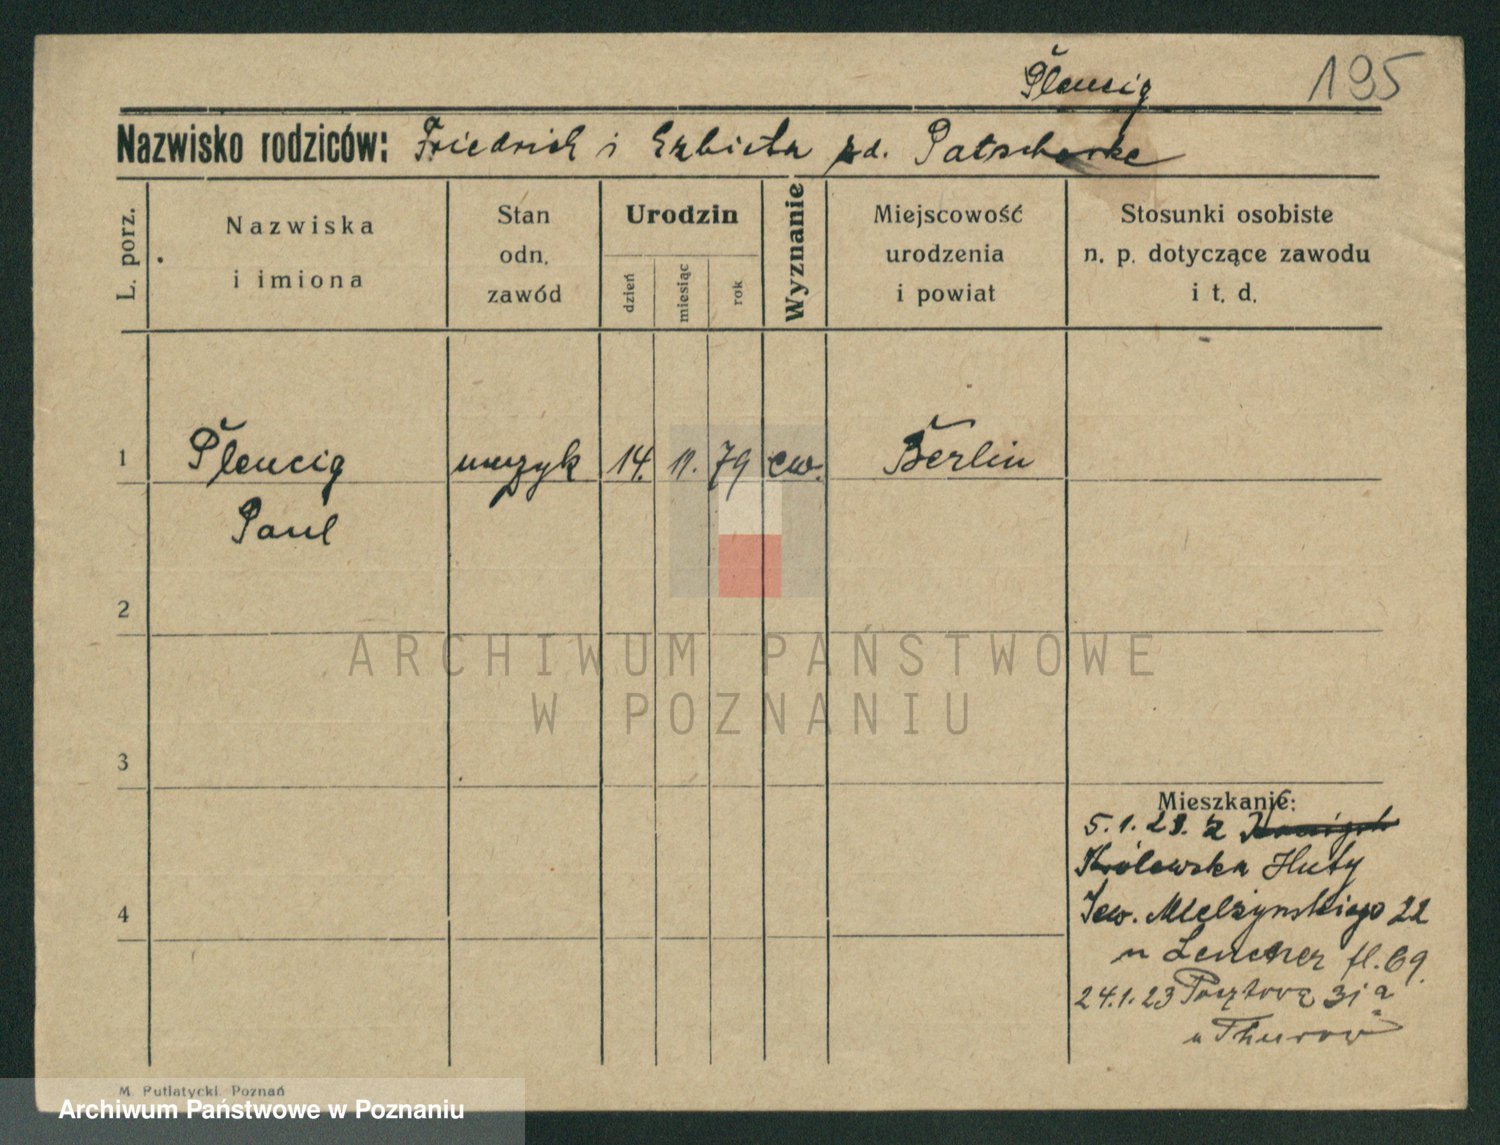 Plensig
195
Nazwisko rodziców: Friedrich i Erbieta zd.
L. porz.
Nazwiska i imiona
Stan odn. zawód
Urodzin
dzień
miesiąc
rok
Wyznanie
Miejscowość urodzenia i powiat
Stosunki osobiste n. p. dotyczące zawodu i t. d.
1 muzyk 14. 11. 79 ew. Berlin
Paul
2
3
Mieszkanie:
5.1.23. z
Królewska Huty
Sew. Mielżynskiego 22
4
24.1.23 31 a
u Thurow
M. Putiatycki, Poznań
ARCHIWUM PAŃSTWOWE
W POZNANIU
Archiwum Państwowe w Poznaniu